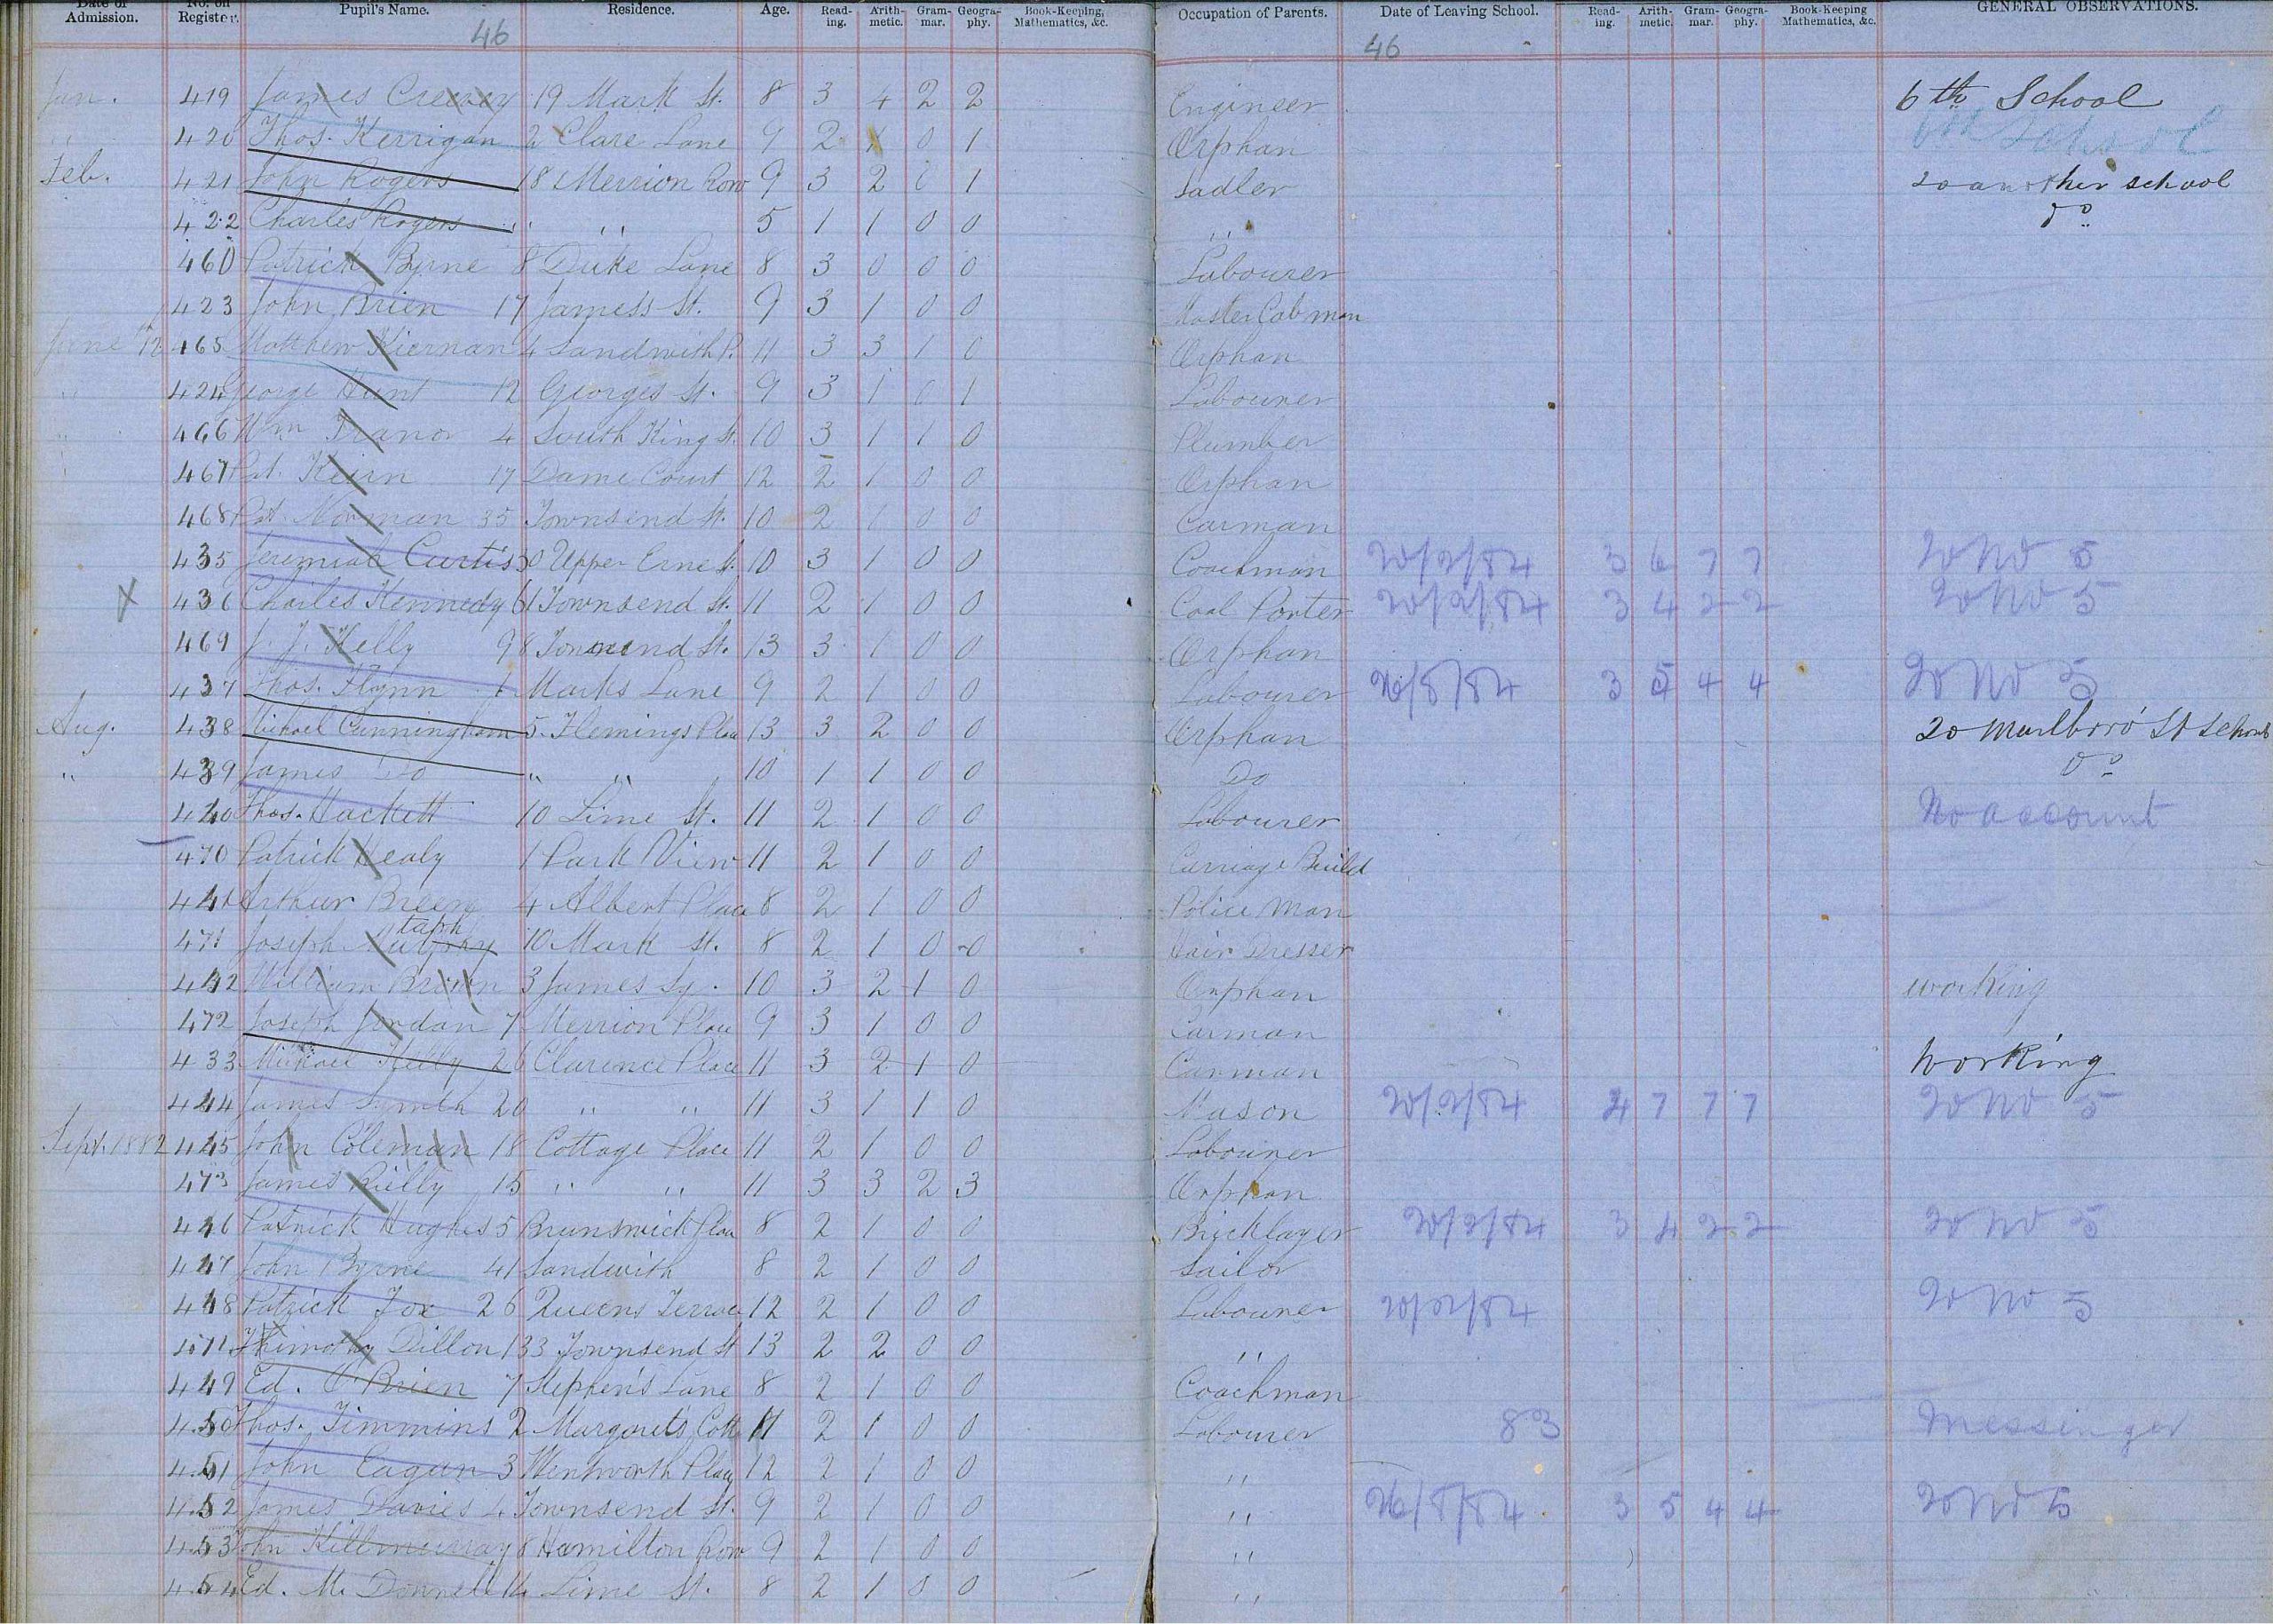 Date of Admission. No. on Register. Pupil's Name. Residence. Age. Reading. Arithmetic. Grammar. Geography. Book-Keeping, Mathematics, &c. Occupation of Parents. Date of Leaving School. Reading. Arithmetic. Grammar. Geography. Book-Keeping Mathematics, &c. GENERAL OBSERVATIONS.
46 46
Jan. 419 James Creevey 19 Mark St. 8 3 4 2 2 Engineer 6th School
" 420 Thos. Kerrigan 2 Clare Lane 9 2 1 0 1 Orphan 6th School
Feb. 421 John Rogers 18 Merrion Row 9 3 2 0 1 Sadler To another school
422 Charles Rogers " " 5 1 1 0 0 " Do
460 Patrick Byrne 8 Duke Lane 8 3 0 0 0 Labourer
423 John Brien 17 James's St. 9 3 1 0 0 Master Cabman
June 465 Matthew Kiernan 4 Sandwith P. 11 3 3 1 0 Orphan
" 424 George Hunt 12 Georges St. 9 3 1 0 1 Labourer
" 466 Wm 4 South King St. 10 3 1 1 0 Plumber
467 Pat. 17 Dame Court 12 2 1 0 0 Orphan
468 Pat. Norman 35 Townsend St. 10 2 1 0 0 Carman
435 Jeremiah Curtis 30 Upper Erne St. 10 3 1 0 0 Coachman 20/2/84 3 6 7 7 To No 5
X 436 Charles Kennedy 61 Townsend St. 11 2 1 0 0 Coal Porter 20/2/84 3 4 2 2 To No 5
469 J. J. Kelly 98 Townsend St. 13 3 1 0 0 Orphan
437 Thos. Flynn 1 Marks Lane 9 2 1 0 0 Labourer 26/8/84 3 5 4 4 To No 5
Aug. 438 Michael Cunningham 5 Flemings Place 13 3 2 0 0 Orphan To Marlboro' St School
" 439 James Do " " 10 1 1 0 0 Do Do
440 Thos. Hackett 10 Lime St. 11 2 1 0 0 Labourer No account
470 Patrick Healy 1 Park View 11 2 1 0 0 Carriage Build
441 Arthur Breen 4 Albert Place 8 2 1 0 0 Police Man
471 Joseph Murphy taph 10 Mark St. 8 2 1 0 0 Hair Dresser
442 William Brown 3 James Sq. 10 3 2 1 0 Orphan working
472 Joseph Jordan 7 Merrion Place 9 3 1 0 0 Carman
433 Michael Kelly 26 Clarence Place 11 3 2 1 0 Carman Working
444 James 20 " " 11 3 1 1 0 Mason 20/2/84 4 7 7 7 To No 5
Sept. 1882 445 John Coleman 18 Cottage Place 11 2 1 0 0 Labourer
473 James Rielly 15 " " 11 3 3 2 3 Orphan
446 Patrick Hughes 5 Brunswick Place 8 2 1 0 0 Bricklayer 20/2/84 3 4 2 2 To No 5
447 John Byrne 41 Sandwith 8 2 1 0 0 Sailor
448 Patrick Fox 26 Queens Terrace 12 2 1 0 0 Labourer 20/02/84 To No 5
Thimothy Dillon 133 Townsend St 13 2 2 0 0 "
449 Ed. O'Brien 7 Stephen's Lane 8 2 1 0 0 Coachman
450 Thos. Timmins 2 Margaret's Cott 11 2 1 0 0 Labourer 83 Messinger
451 John Eagan 3 Wentworth Place 12 2 1 0 0 "
452 James Davies 4 Townsend St. 9 2 1 0 0 " 26/8/84 3 5 4 4 To No 5
453 John Killmurray 8 Hamilton Row 9 2 1 0 0 "
454 Ed. Mc Donnell Lime St. 8 2 1 0 0 "